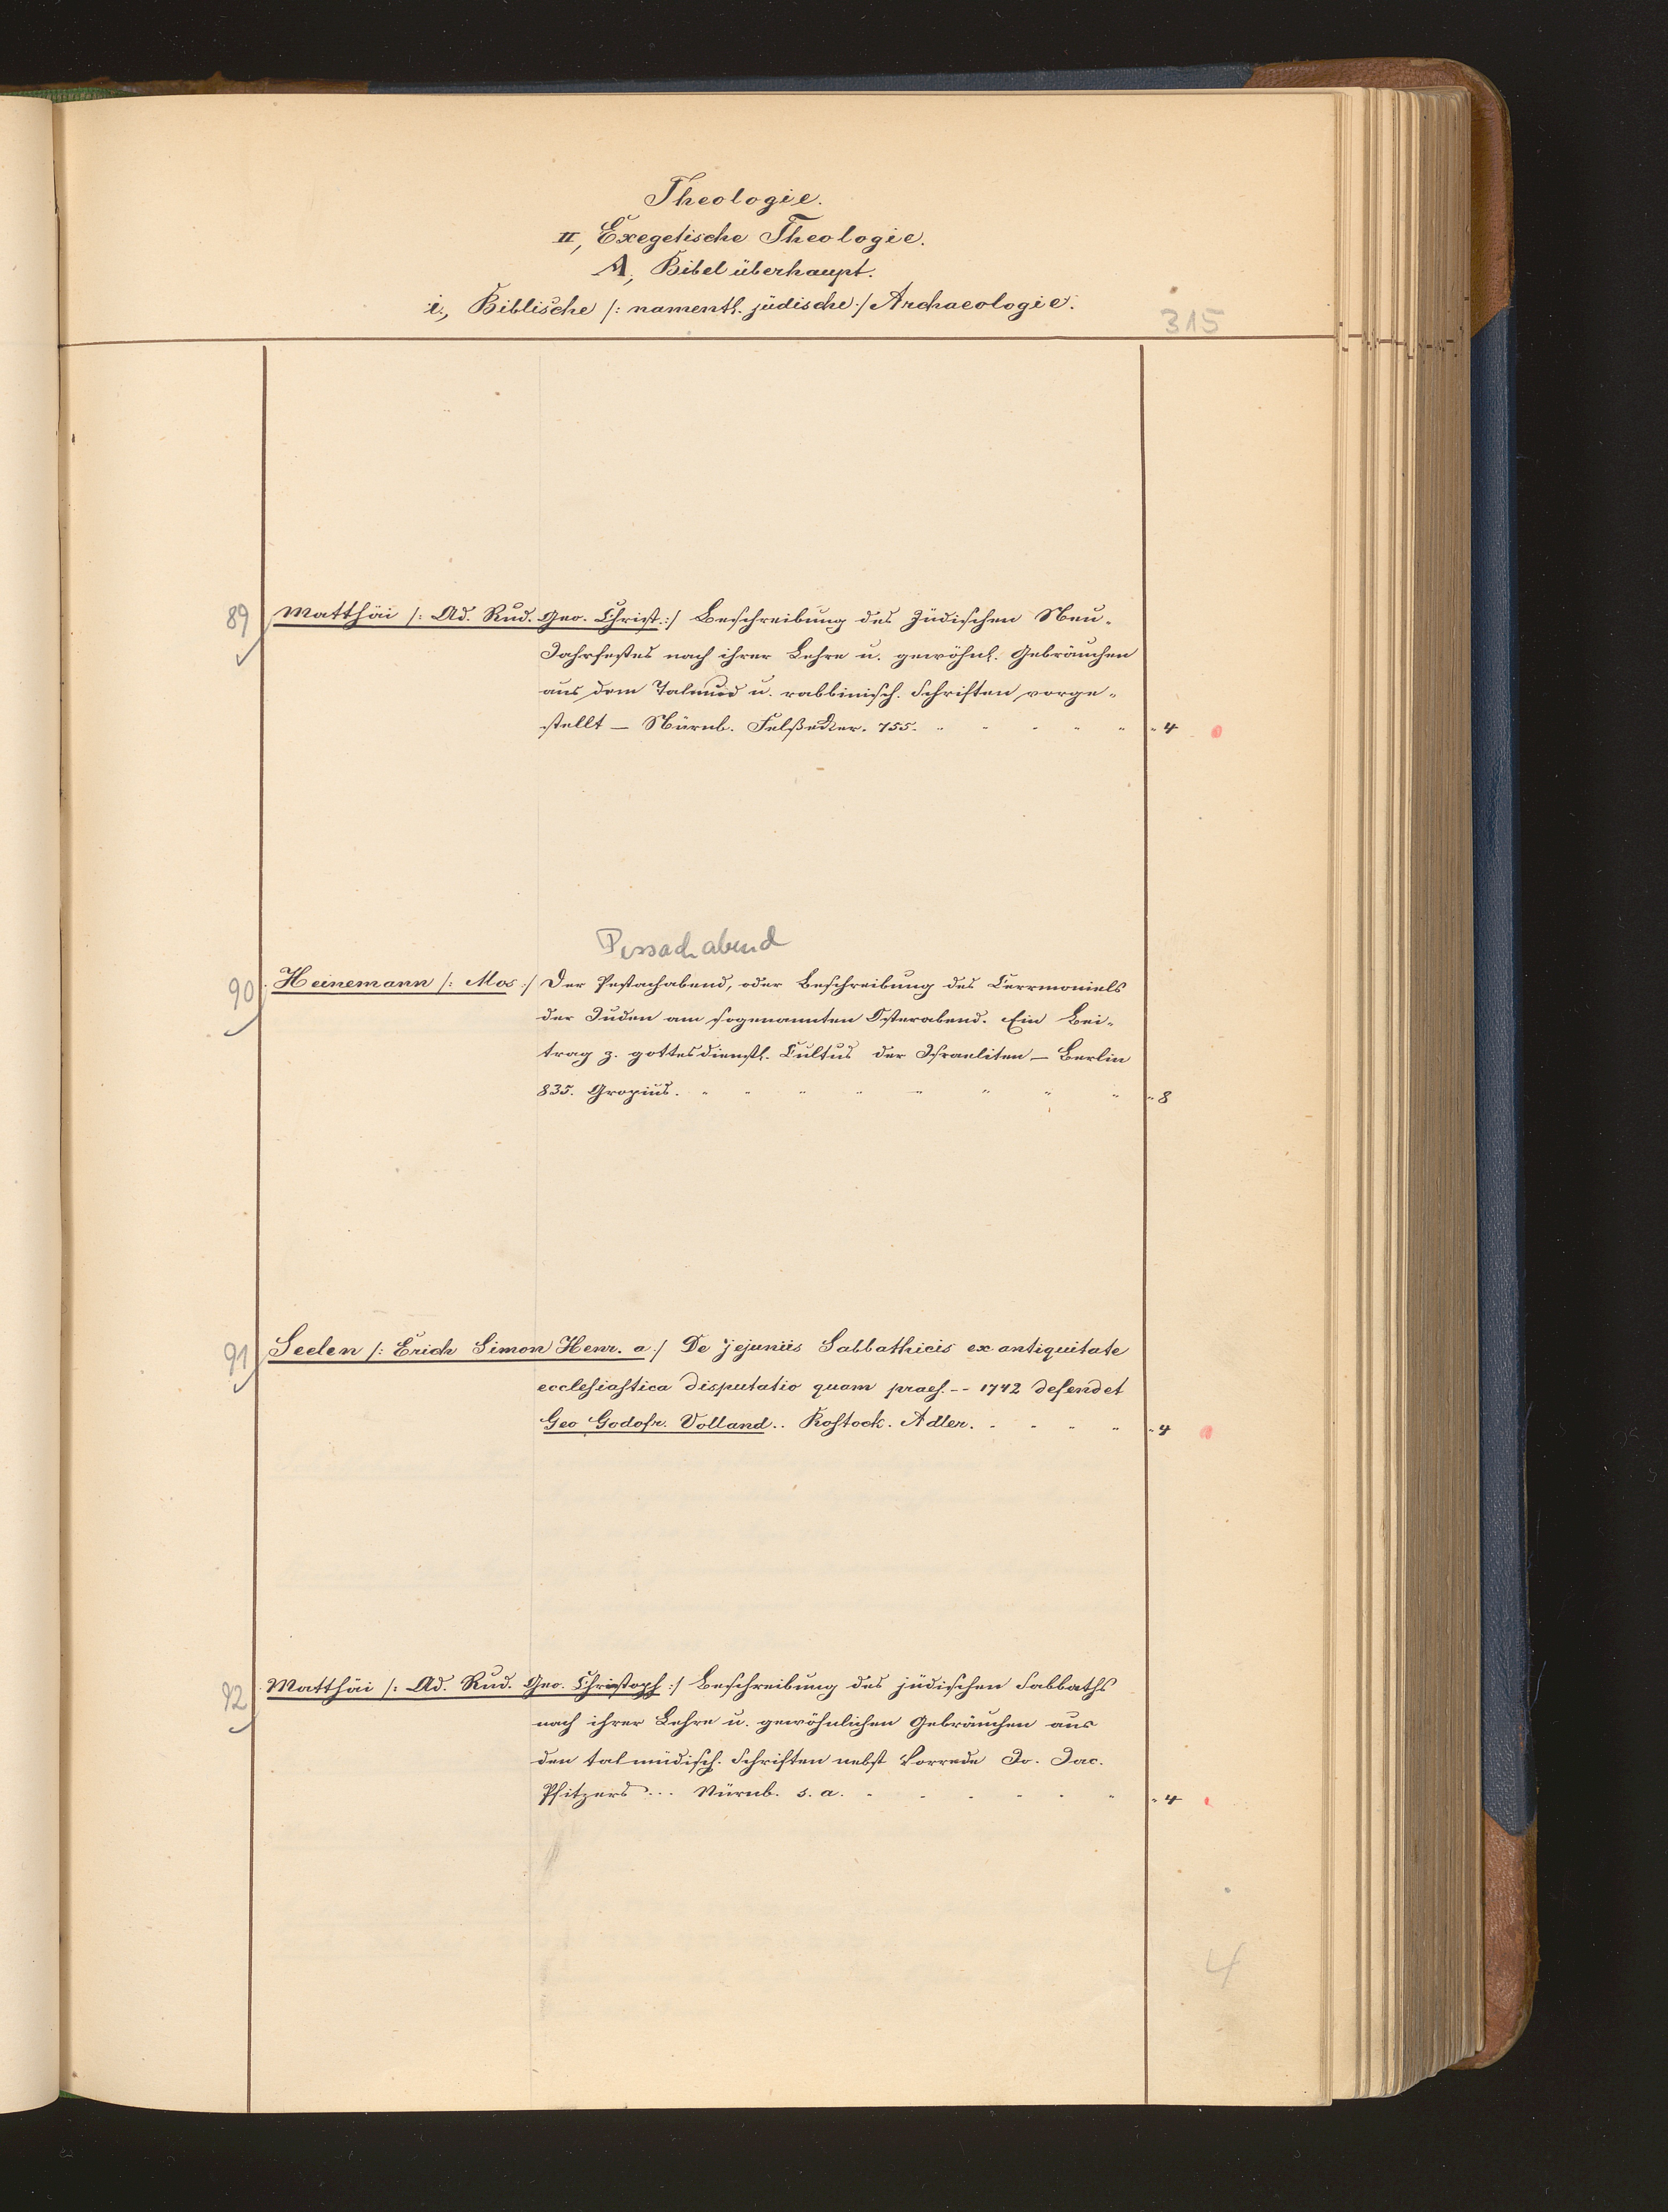 Theologie.
II, Exegetische Theologie.
A, Bibel überhaupt.
i., Biblische /: namentl. jüdische :/ Archaeologie.
315
89 Matthäi /: Ad. Rud. Geo. Christ. :/ Beschreibung des Jüdischen Neu-
Jahrfestes nach ihrer Lehre u. gewöhnl. Gebräuchen
aus dem Talmud u. rabbinisch. Schriften vorge-
stellt — Nürnb. Felßecker. 755. " 4
Pessachabend
90 Heinemann /: Mos :/ Der Pestachabend, oder Beschreibung des Cerrmoniels
der Juden am sogenannten Osterabend. Ein Bei-
trag z. gottesdienstl. Cultus der Israeliten — Berlin
835. Gropius. " 8
91 Seelen /: Erich Simon Henr. a :/ De jejuniis Sabbathicis ex antiquitate
ecclesiastica disputatio quam praes. -- 1742 defendet
Geo Godofr. Volland .. Rostock. Adler. " 4
92 Matthäi /: Ad. Rud. Geo. Christoph :/ Beschreibung des jüdischen Sabbaths
nach ihrer Lehre u. gewöhnlichen Gebräuchen aus
den talmudisch. Schriften nebst Vorrede Jo. Jac.
Pfitzers ... Nürnb. s. a. " 4
4